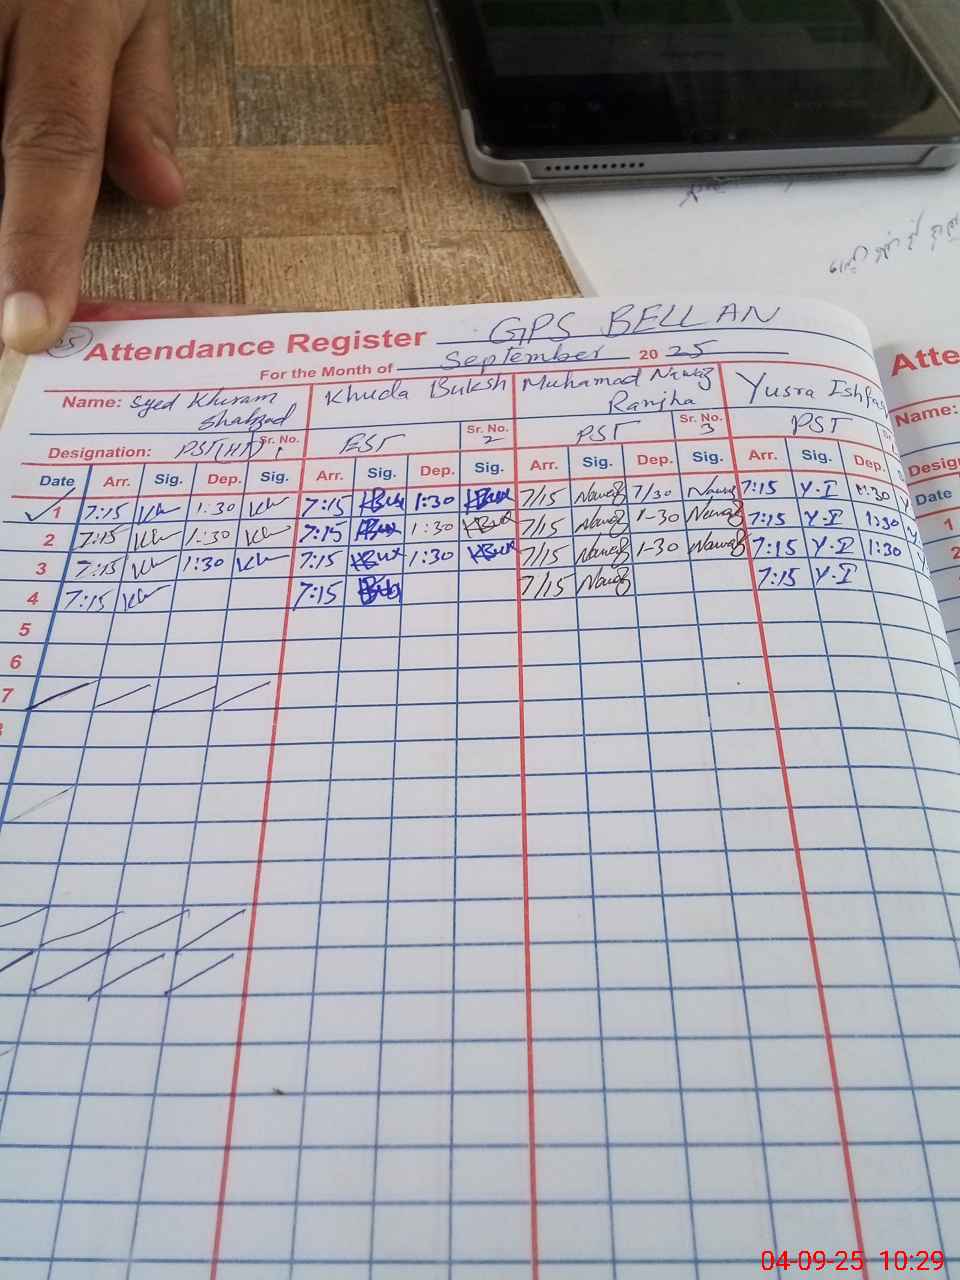 25 Attendance Register GPS BELLAN
For the Month of September 20 25
Name: Syed Khuram Shahzad Khuda Buksh Muhamad Nawaz Ranjha Yusra Ishfaq
Designation: PST(HT) Sr. No. 1 EST Sr. No. 2 PST Sr. No. 3 PST
Date Arr. Sig. Dep. Sig. Arr. Sig. Dep. Sig. Arr. Sig. Dep. Sig. Arr. Sig. Dep.
1 7:15 Kh 1:30 Kh 7:15 KBux 1:30 KBux 7/15 Nawaz 7/30 Nawaz 7:15 Y.I 1:30 Y
2 7:15 Kh 1:30 Kh 7:15 KBux 1:30 KBux 7/15 Nawaz 1-30 Nawaz 7:15 Y.I 1:30 Y
3 7:15 Kh 1:30 Kh 7:15 KBux 1:30 KBux 7/15 Nawaz 1-30 Nawaz 7:15 Y.I 1:30 Y
4 7:15 Kh 7:15 7/15 Nawaz 7:15 Y.I
5
6
7
Atte
Name:
Desig
Date
1
2
04-09-25 10:29